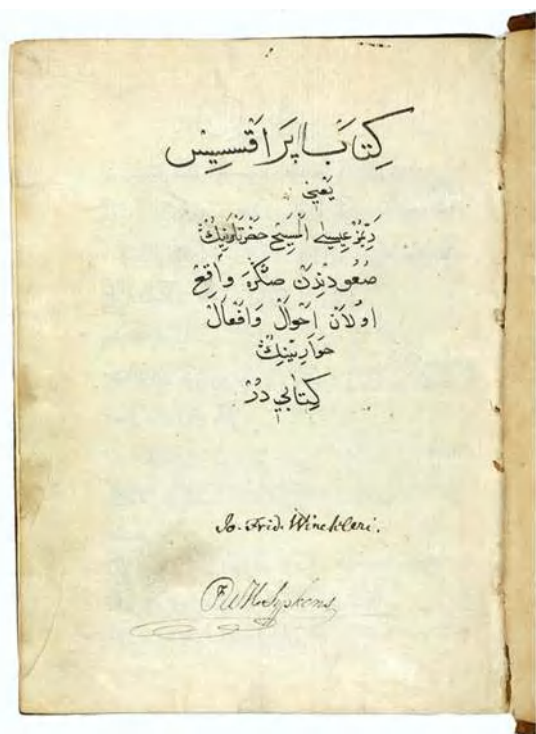 كِتَابْ پَرَاقْسِيسْ
يَعْنِي
رَبِّمُزْ عِيسَى الْمَسِيحْ حَضْرَتْلَرِينِڭْ
صُعُودِنْدَنْ صُڭْرَه وَاقِعْ
اُولَانْ اَحْوَالْ وَافْعَالْ
حَوَارِيِّينِڭْ
كِتَابِي دُرْ
Jo. Frid. Winckleri.